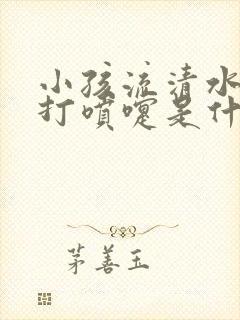 小孩流清水
打喷嚏是什
茅善玉